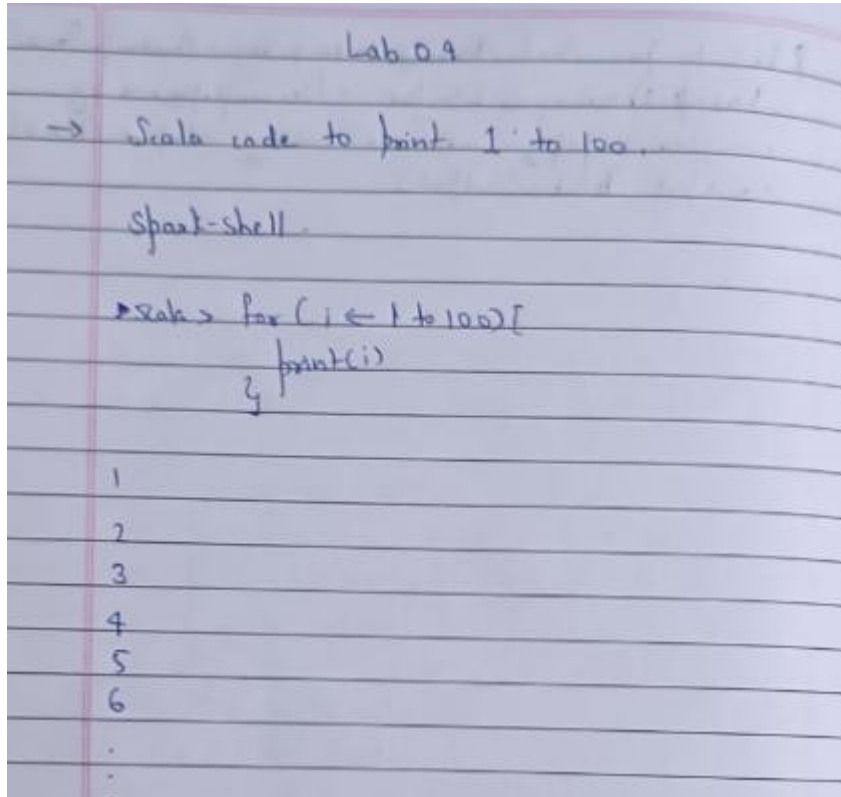 Lab 09
→ Scala code to print 1 to 100.
Spark-shell
scala > for (i ← 1 to 100) {
print(i)
}
1
2
3
4
5
6
.
.